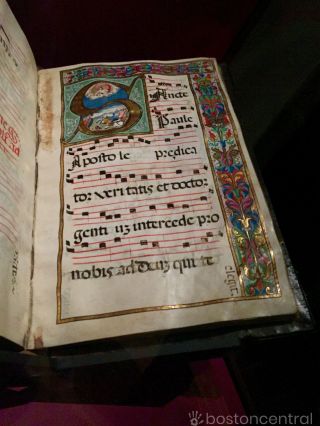 Sancte
Paule
Apostole predica
tor veritatis et doctor
gentium intercede pro
nobis ad Deum qui te
elegit
bostoncentral